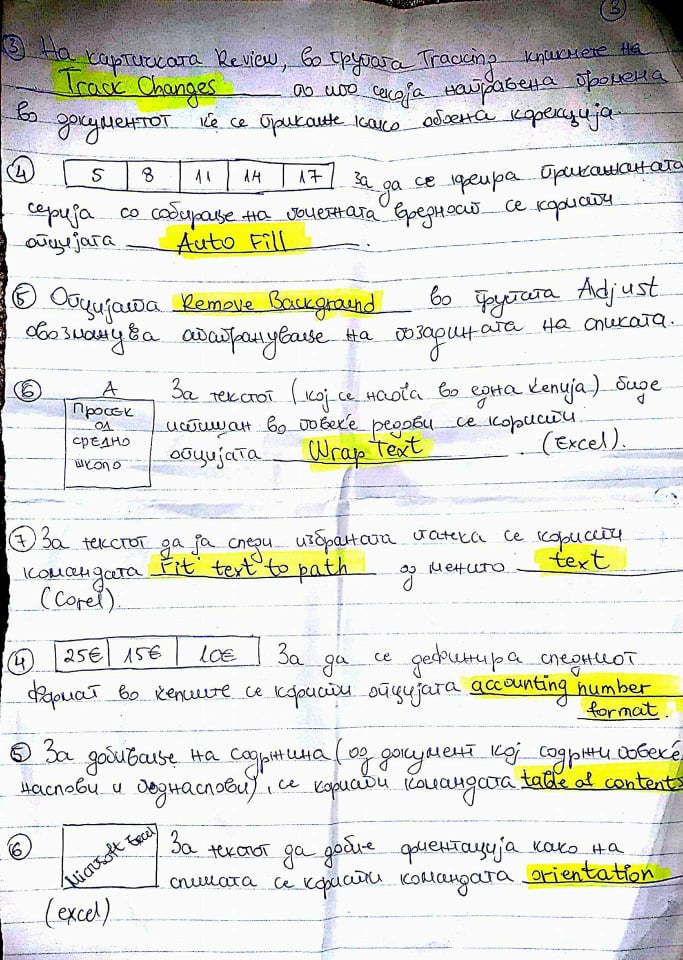 3
③ На картичката Review, во групата Tracking кликнете на
Track Changes по што секоја направена промена
во документот ќе се прикаше како обоена корекција.
④ 5 8 11 14 17 За да се креира прикашаната
серија со собирање на почетната вредност се користи
опцијата Auto Fill.
⑤ Опцијата Remove Background во групата Adjust
овозможува отстранување на позадината на сликата.
⑥ A За текстот (кој се наоѓа во една ќелија) биде
Просек испишан во повеќе редови се користи
од
средно опцијата Wrap Text. (Excel).
школо
⑦ За текстот да ја следи избраната патека се користи
командата Fit text to path од менито text
(Corel).
④ 25€ 15€ 10€ За да се дефинира следниот
формат во ќелиите се користи опцијата accounting number
format.
⑤ За добивање на содржина (од документ кој содржи повеќе
наслови и поднаслови), се користи командата table of contents
⑥ Microsoft Excel За текстот да добие ориентација како на
сликата се користи командата orientation
(excel)